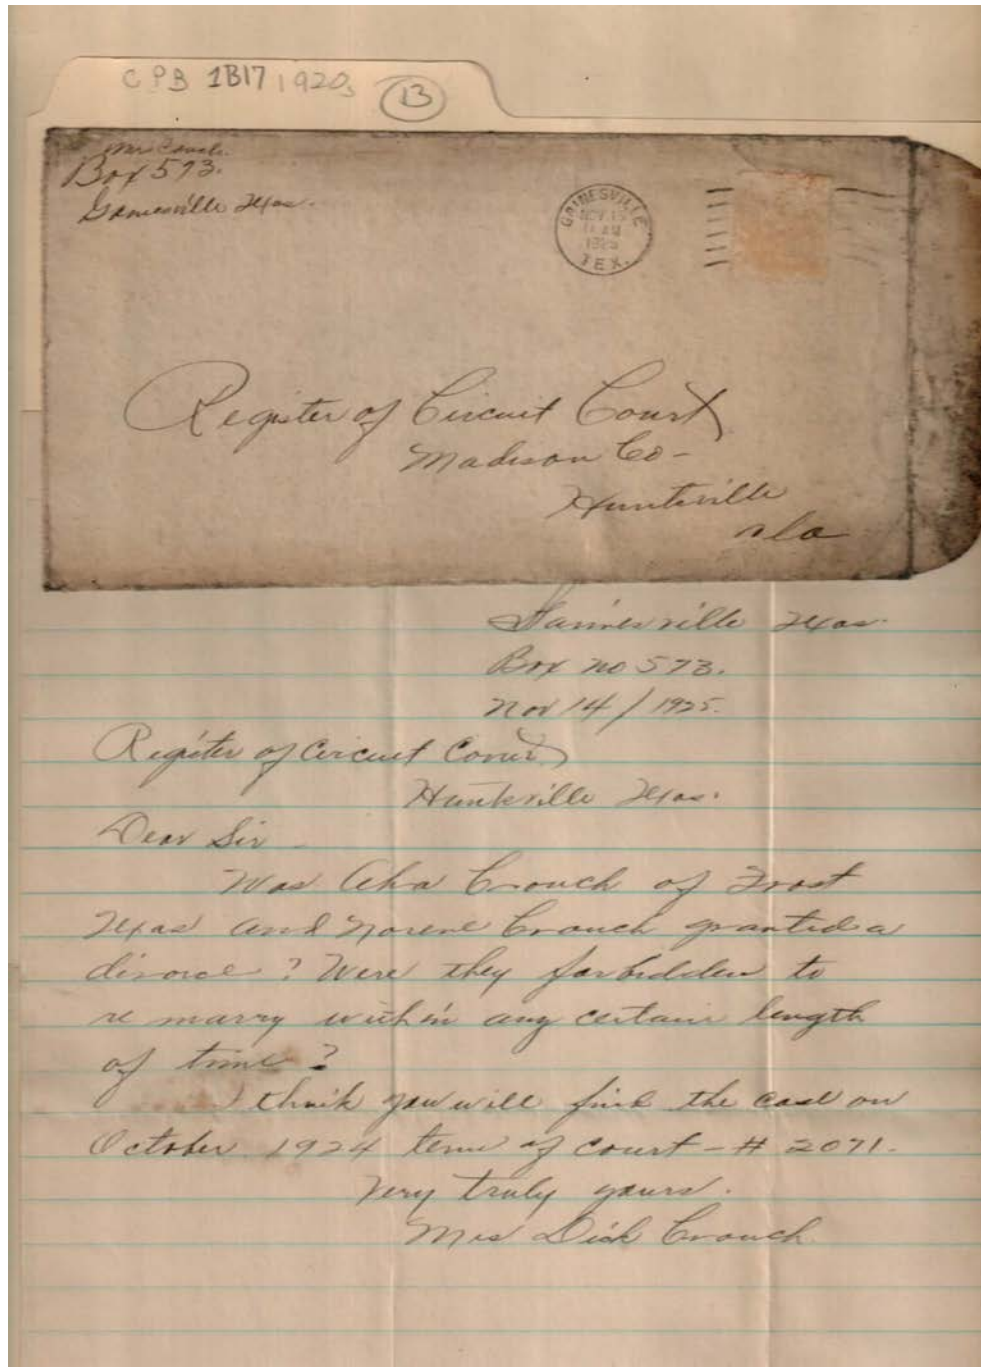 CPB 1B17 1920s 13
Mrs Crouch.
Box 573.
Gainesville Texas.
GAINESVILLE
NOV 15
AM
1925
TEX.
Register of Circuit Court
Madison Co-
Huntsville
Ala
Gainesville Texas.
Box no 573.
Nov 14/1925.
Register of Circuit Court
Huntsville Texas.
Dear Sir -
Was Crouch of Frost
Texas and Norene Crouch granted a
divorce? Were they forbidden to
re marry within any certain length
of time?
I think you will find the case on
October 1924 term of court - # 2071.
Very truly yours.
Mrs Dick Crouch